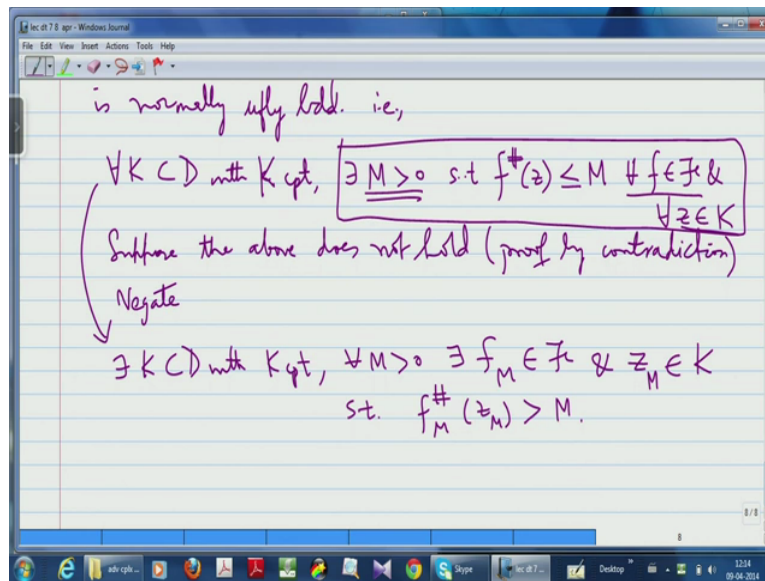 lec dt 7 8 apr - Windows Journal
File Edit View Insert Actions Tools Help
is normally ufly bdd. i.e.,
∀K ⊂ D with K cpt, ∃ M>0 s.t f^#(z) ≤ M ∀ f ∈ ℱ &
∀ z ∈ K
Suppose the above does not hold (proof by contradiction)
Negate
∃ K ⊂ D with K cpt, ∀ M>0 ∃ f_M ∈ ℱ & z_M ∈ K
s.t. f_M^#(z_M) > M.
8/8
8
adv cplx... Skype lec dt 7... Desktop 12:14
09-04-2014